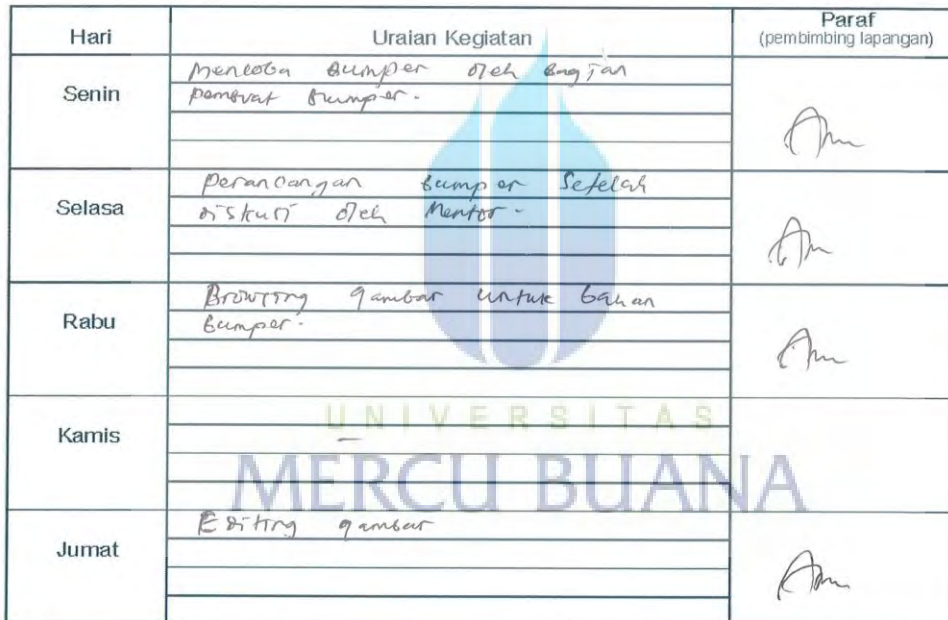 Hari
Uraian Kegiatan
Paraf
(pembimbing lapangan)
Senin
Mencoba Bumper oleh bagian
pembuat Bumper.
Selasa
perancangan bumper setelah
diskusi oleh Mentor.
Rabu
Browsing gambar untuk bahan
bumper.
Kamis
-
Jumat
Editing gambar
UNIVERSITAS
MERCU BUANA